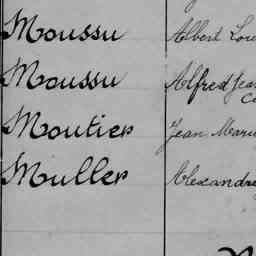 Moussu Albert Lou
Moussu Alfred Jea
Moutier Jean Mari
Muller Alexandre